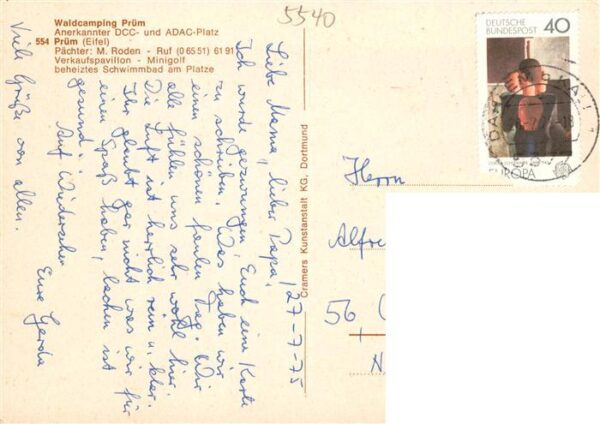 5540
Waldcamping Prüm
Anerkannter DCC- und ADAC-Platz
554 Prüm (Eifel)
Pächter: M. Roden - Ruf (0 65 51) 61 91
Verkaufspavillon - Minigolf
beheiztes Schwimmbad am Platze
27-7-75
Liebe Mama, lieber Papa!
Ich wurde gezwungen, Euch eine Karte
zu schreiben. Was haben wir
einen schönen faulen Tag. Wir
alle fühlen uns sehr wohl hier.
Die Luft ist herrlich rein u. klar.
Ihr glaubt gar nicht was wir für
einen Spaß haben, lachen ist
gesund. Auf Wiedersehen
Eure Gerda
Viele Grüße von allen.
Cramers Kunstanstalt KG, Dortmund
DEUTSCHE
BUNDESPOST
40
EUROPA
Herrn
Alfre
56